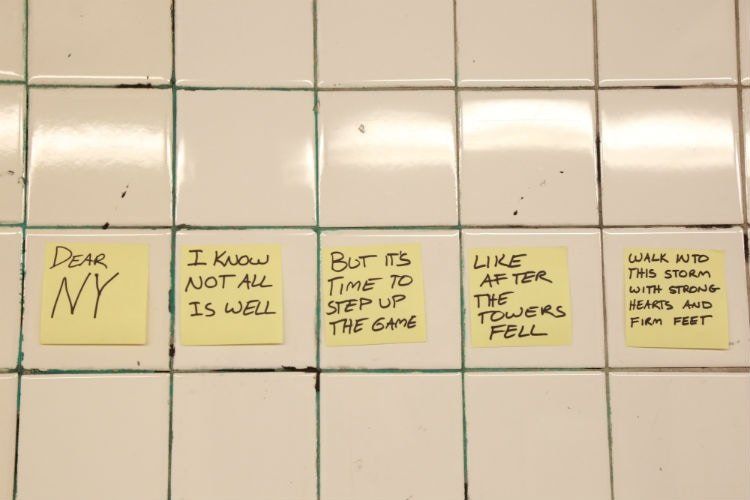 DEAR
NY
I KNOW
NOT ALL
IS WELL
BUT IT'S
TIME TO
STEP UP
THE GAME
LIKE
AFTER
THE
TOWERS
FELL
WALK INTO
THIS STORM
WITH STRONG
HEARTS AND
FIRM FEET